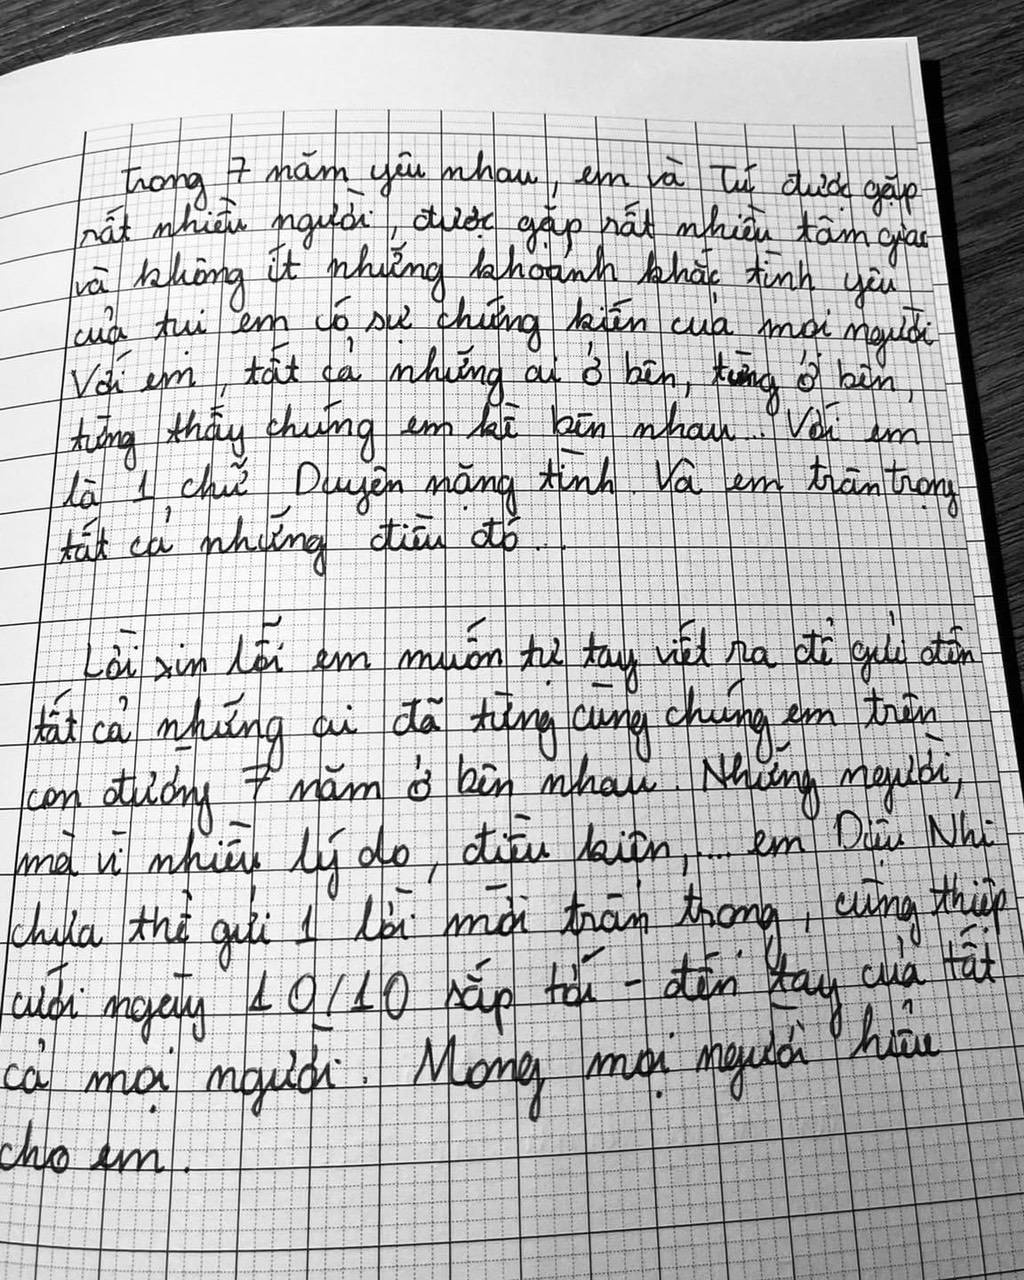 Trong 7 năm yêu nhau, em và Tú được gặp
rất nhiều người, được gặp rất nhiều tâm giao
và không ít những khoảnh khắc tình yêu
của tụi em có sự chứng kiến của mọi người
Với em, tất cả những ai ở bên, từng ở bên,
từng thấy chúng em kề bên nhau... Với em
là 1 chữ Duyên nặng tình. Và em trân trọng
tất cả những điều đó...
Lời xin lỗi em muốn tự tay viết ra để gửi đến
tất cả những ai đã từng cùng chúng em trên
con đường 7 năm ở bên nhau. Những người,
mà vì nhiều lý do, điều kiện,... em Diệu Nhi
chưa thể gửi 1 lời mời trân trọng, cùng thiệp
cưới ngày 10/10 sắp tới - đến tay của tất
cả mọi người. Mong mọi người hiểu
cho em.